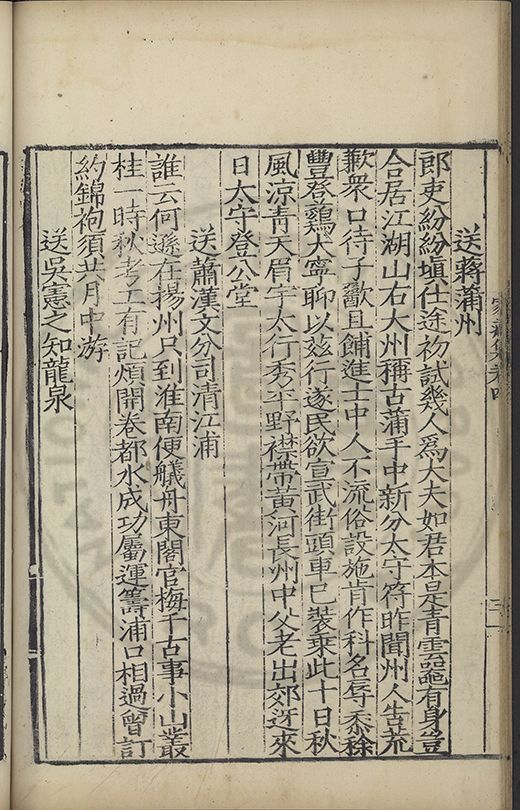 送蔣蒲州
郎吏紛紛塡仕途初試幾人爲大夫如君本是青雲器有身豈
合居江湖山右大州稱古蒲手中新分太守符昨聞州人苦荒
歉衆口待子歠且餔進士中人不流俗設施肯作科名辱黍稌
豐登鷄犬寧聊以玆行遂民欲宣武街頭車已裝乘此十日秋
風涼青天眉宇太行秀平野襟帶黃河長州中父老出郊迓來
日太守登公堂
送蕭漢文分司清江浦
誰云何遜在揚州只到淮南便艤舟東閣官梅千古事小山叢
桂一時秋考工有記煩開卷都水成功屬運籌浦口相過曾訂
約錦袍須共月中游
送吳憲之知龍泉
家藏集卷四